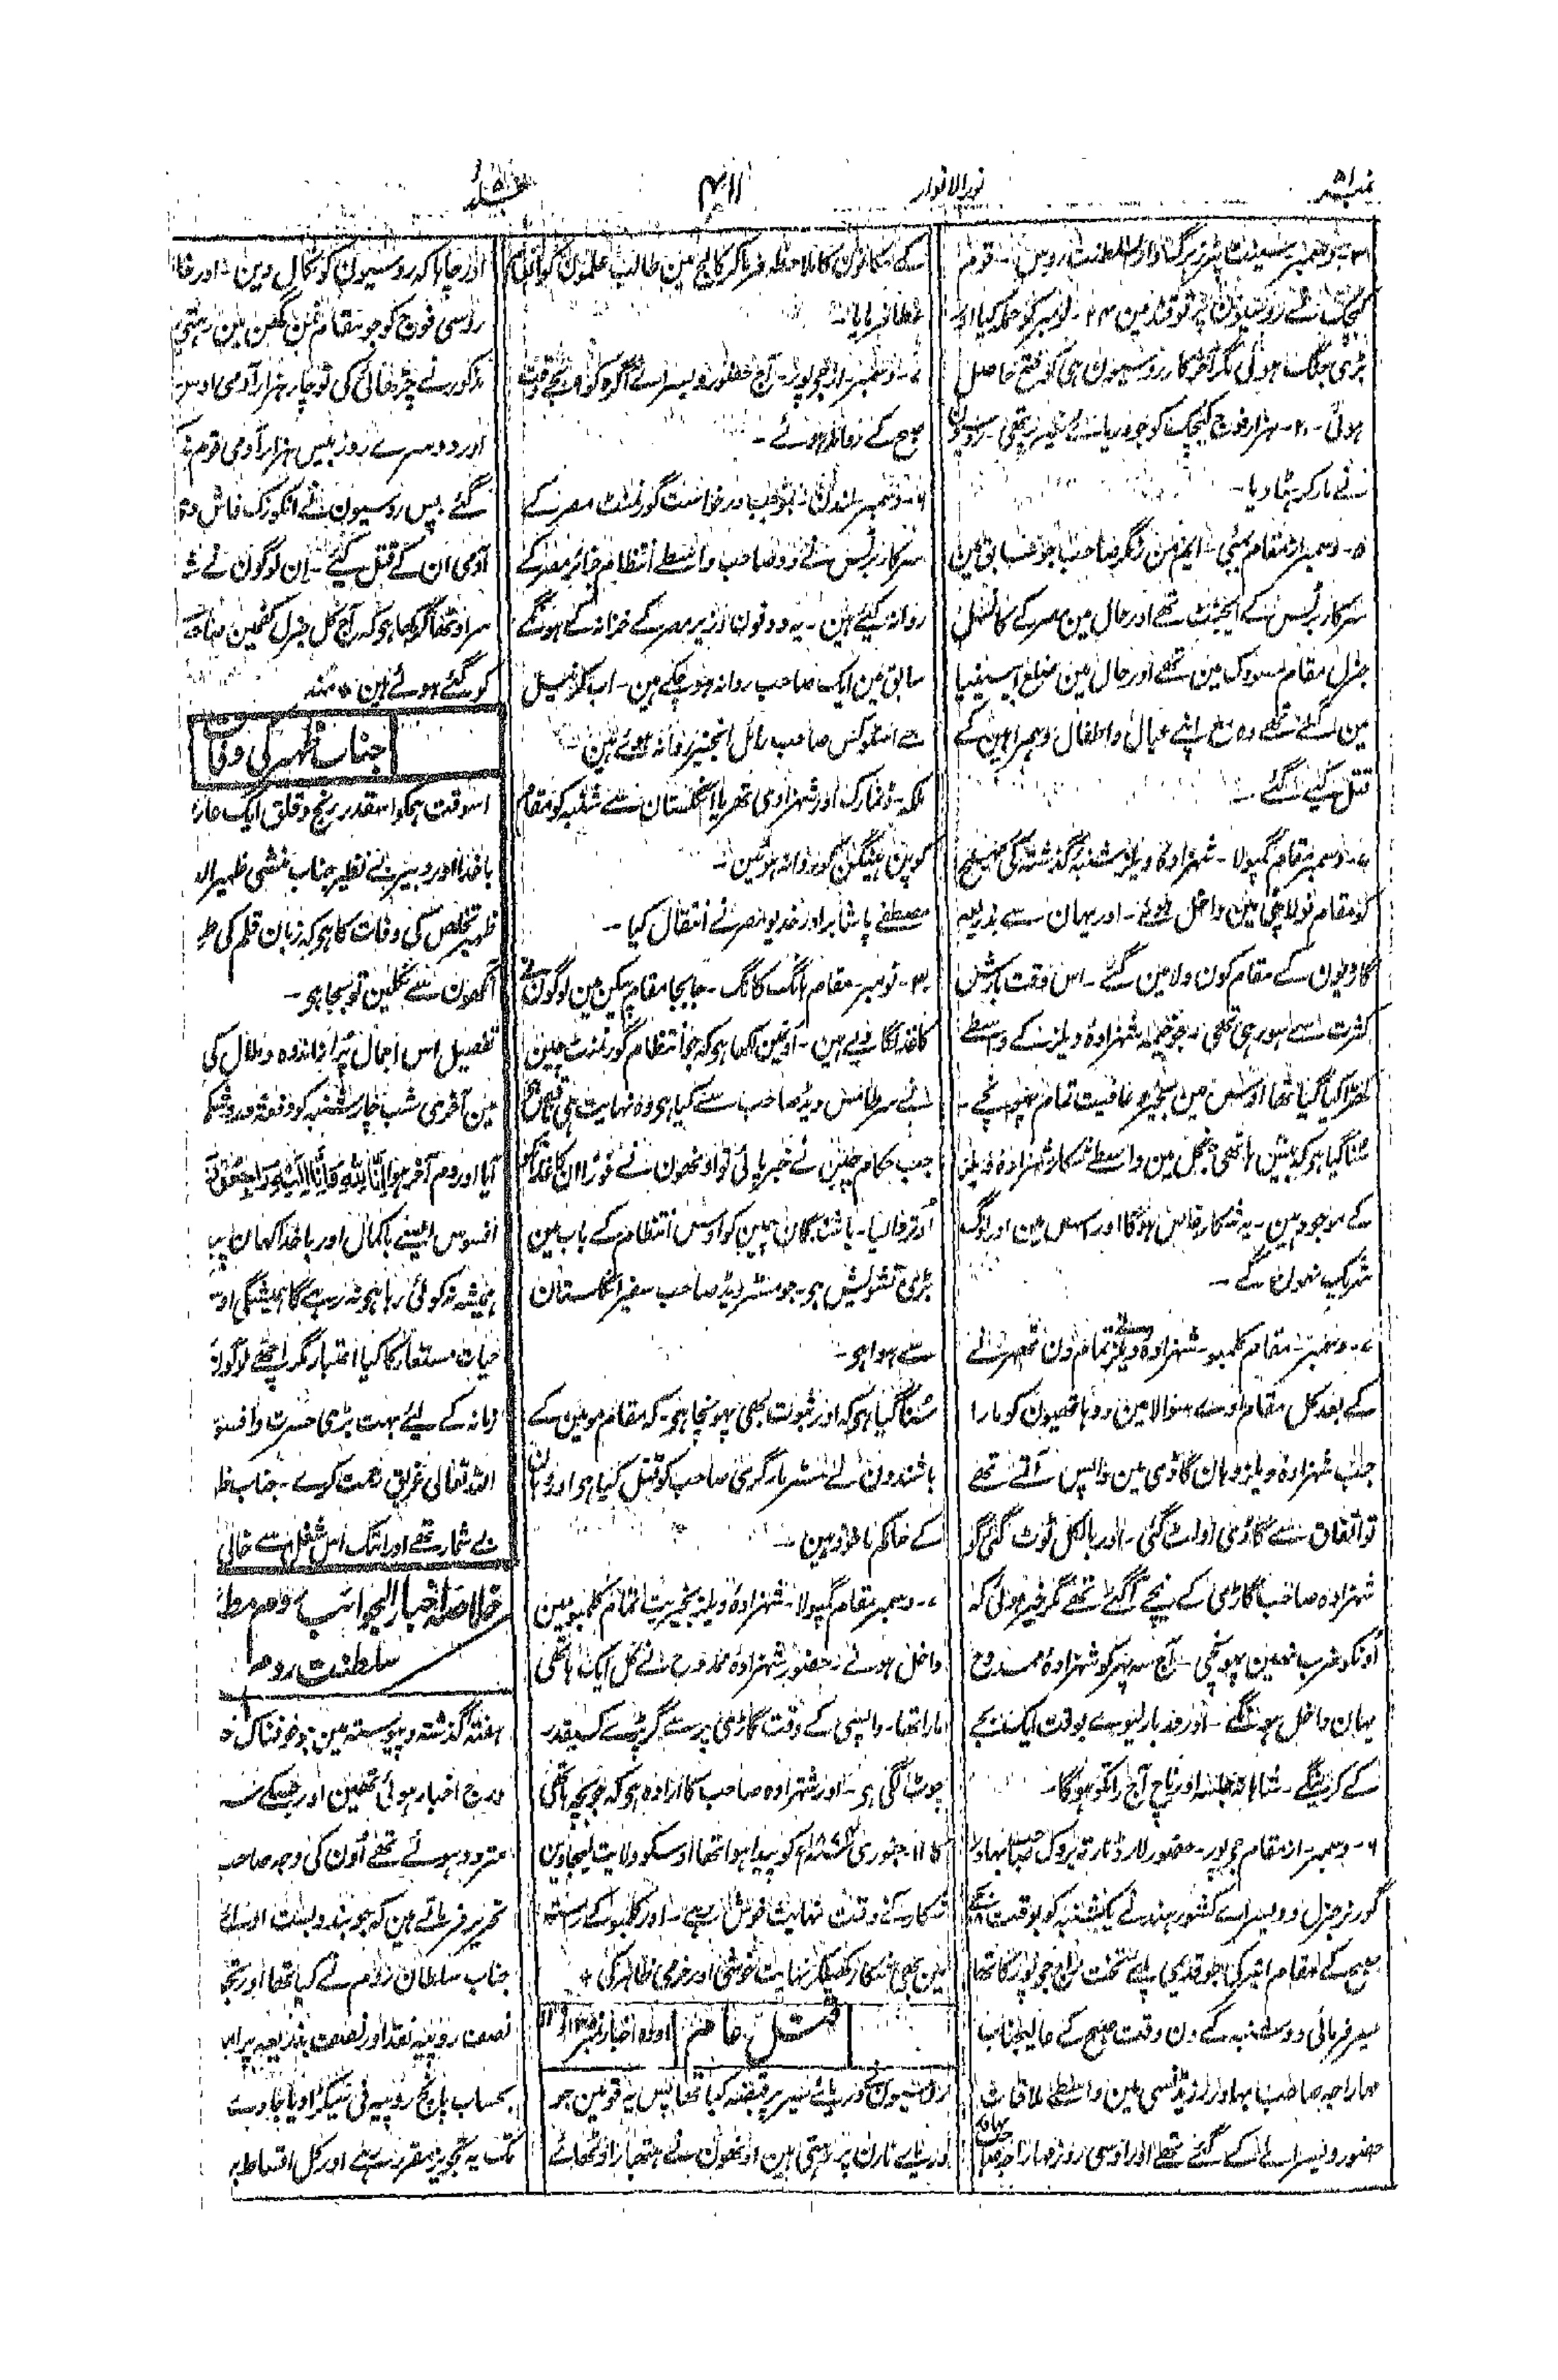 نمبر ۵۱
نور الانوار
۴۱۱
جلد ۵
دسمبر سینٹ پیٹرز برگ دار السلطنت روس - قوم
کپچک نے روسیون پر توقند مین ۲۴ - نومبر کو حملہ کیا اور
بڑی جنگ ہوئی مگر آخر کار روسیون ہی کو فتح حاصل
ہوئی - ۲۰ - ہزار فوج کپچک کو جو دریائے پر تھی - روسیون
نے مار کر ہٹا دیا -
۵ - دسمبر از مقام بمبئی - ایم من زنگر صاحب جو سابق مین
سرکار برٹش کے ایجنٹ تھے اور حال مین مصر کے کانسل
جنرل مقام مسوک مین تھے اور حال مین ضلع ابیسینیا
مین گئے تھے وہ مع اپنے عیال و اطفال و ہمراہین کے
قتل کیے گئے -
دسمبر مقام کمپولا - شہزادہ ویلز شنبہ گذشتہ کی صبح
کو مقام نولاپٹی مین داخل ہوئے - اور یہان سے بذریعہ
گاڑیون کے مقام کون ولا مین گئے - اس وقت بارش
کثرت سے ہو رہی تھی - جو خیمہ شہزادہ ویلز کے واسطے
کھڑا کیا گیا تھا اوسمین بخیر و عافیت تمام پہونچے -
سنا گیا ہو کہ بیس ہاتھی جنگل مین واسطے شکار شہزادہ ویلز
کے موجود ہین - یہ شکار خاص ہوگا اور اسمین اور لوگ
شریک نہون گے -
۷ - دسمبر - مقام کلمبو - شہزادہ ویلز نے تمام دن ٹھہرنے
کے بعد کل مقام اوسے سوالا مین دو ہاتھیون کو مارا
جب شہزادہ ویلز وہان گاڑی مین واپس آتے تھے
تو اتفاق سے گاڑی اولٹ گئی - اور بالکل ٹوٹ گئی گو
شہزادہ صاحب گاڑی کے نیچے آگئے تھے مگر خیر ہوئی کہ
اونکو ضرب نہین پہونچی - آج سہ پہر کو شہزادہ ممدوح
یہان داخل ہونگے - اور دربار لیوے بوقت ایک بجے
کے کرینگے - شاہانہ جلسہ اور ناچ آج رات کو ہوگا -
۶ - دسمبر - از مقام جے پور - حضور لارڈ نارتھ بروک صاحب بہادر
گورنر جنرل و ویسرائے کشور ہند نے یکشنبہ کو بوقت
صبح کے مقام امیر کی جو قدیمی پائے تخت راج جے پور کا تھا
سیر فرمائی دوشنبہ کے دن وقت صبح کے عالیجناب
مہاراجہ صاحب بہادر رزیڈنسی مین واسطے ملاقات
حضور ویسرائے کے گئے تھے اور اوسی روز مہاراجہ صاحب بہادر
کے مکانون کا ملاحظہ فرما کر کالج مین طالب علمون کو انعام
عطا فرمایا -
۷ - دسمبر - از جے پور - آج حضور ویسرائے آگرہ کو بجے وقت
صبح کے روانہ ہوئے -
دسمبر لندن - بموجب درخواست گورنمنٹ مصر کے
سرکار برٹش نے دو صاحب واسطے انتظام خزانہ مصر کے
روانہ کیے ہین - یہ دونون وزیر مصر کے خزانہ کے ہونگے
سابق مین ایک صاحب روانہ ہو چکے ہین - اب کرنیل
اسٹوکس صاحب رائل انجنیر روانہ ہوئے ہین -
ملکہ ڈنمارک اور شہزادی تھریا انگلستان سے شنبہ کو مقام
کوپن ہیگن کو روانہ ہوئین -
مصطفے پاشا برادر خدیو مصر نے انتقال کیا -
۳ - نومبر - مقام ہانگ کانگ - جابجا مقام پیکن مین لوگون نے
کاغذ لگا دیے ہین - اونمین لکھا ہو کہ جو انتظام گورنمنٹ چین
نے سر طامس ویڈ صاحب سے کیا ہو وہ نہایت ہی
جب حکام چین نے خبر پائی تو اونھون نے فوراً ان کاغذون کو
اوتروا لیا - باشندگان چین کو اوس انتظام کے باب مین
بڑی تشویش ہو - جو مسٹر ویڈ صاحب سفیر انگلستان
سے ہوا ہو -
سنا گیا ہی کہ اور ثبوت بھی پہونچا ہو - کہ مقام مومین کے
باشندون نے مسٹر مارگری صاحب کو قتل کیا ہو اور وہان
کے حاکم ماخوذ ہین -
۷ - دسمبر مقام کمپولا - شہزادہ ویلز بخیریت تمام کلمبو مین
داخل ہوئے - حضور شہزادہ ممدوح نے کل ایک ہاتھی
مارا تھا - واپسی کے وقت گاڑی پر سے گر پڑے کسیقدر
چوٹ لگی ہو - اور شہزادہ صاحب کا ارادہ ہو کہ جو بچہ ہاتھی
کا ۱۱ - جنوری کو پیدا ہوا تھا اوسکو ولایت لیجاوین
شکار کے وقت نہایت خوش رہے - اور کلمبو کے رستہ
مین بھی شکار کھیلکر نہایت خوشی اور خرمی ظاہر کی *
قتل عام
اودہ اخبار نمبر
روسیون نے دریائے سیر پر قبضہ کیا تھا پس یہ قومین جو
دریائے نارن پر رہتی ہین اونھون نے ہتھیار اوٹھائے
اور چاہا کہ روسیون کو نکال دین - اور
روسی فوج کو جو مقام نمن گھن مین رہتی
مذکور نے چڑھائی کی تو چار ہزار آدمی اوس
اور دوسرے روز بیس ہزار آدمی قوم
گئے پس روسیون نے انکو زک فاش دی
آدمی ان کے قتل کیے - ان لوگون نے
سر اوٹھا رکھا ہو کہ آج کل جنرل کفمین
کو گئے ہوئے ہین *
جناب ظہیر کی وفا
اسوقت ہمکو اسقدر رنج و قلق ایک
باخدا اور دبیر بے نظیر جناب منشی ظہیر الد
ظہیر تخلص کی وفات کا ہو کہ زبان قلم کی
آنکھون سے غمگین تو بیجا ہو -
تفصیل اس اجمال پر از اندوہ و ملال کی
مین آخری شب چار شنبہ کو دفعۃً درد شکم
آیا اور دم آخر ہوا اِنَّا لِلّٰہِ وَاِنَّا اِلَیْہِ رَاجِعُوْنَ
افسوس ایسے باکمال اور باخدا کہان
ہمیشہ نہ کوئی رہا ہو نہ رہے گا ہمیشگی
حیات مستعار کا کیا اعتبار مگر اچھے لوگون
زمانہ کے لیے بہت بڑی حسرت و افسو
اللہ تعالی غریق رحمت کرے - جناب ظ
بے شمار تھے اور ابتک اس شغل سے خالی
خلاصہ اخبار الجوائب
سلطنت روم
ہفتہ گذشتہ و پیوستہ مین جو خوفناک
درج اخبار ہوئی تھین اور جسکے
متردد ہوئے تھے اون کی وجہ صاحب
تحریر فرماتے ہین کہ جو بندوبست
جناب سلطان روم نے کیا تھا اور
نصف روپیہ نقد اور نصف بذریعہ
بحساب پانچ روپیہ فی سیکڑا دیا جاوے
تک یہ تجویز مقرر رہے اور کل اقساط